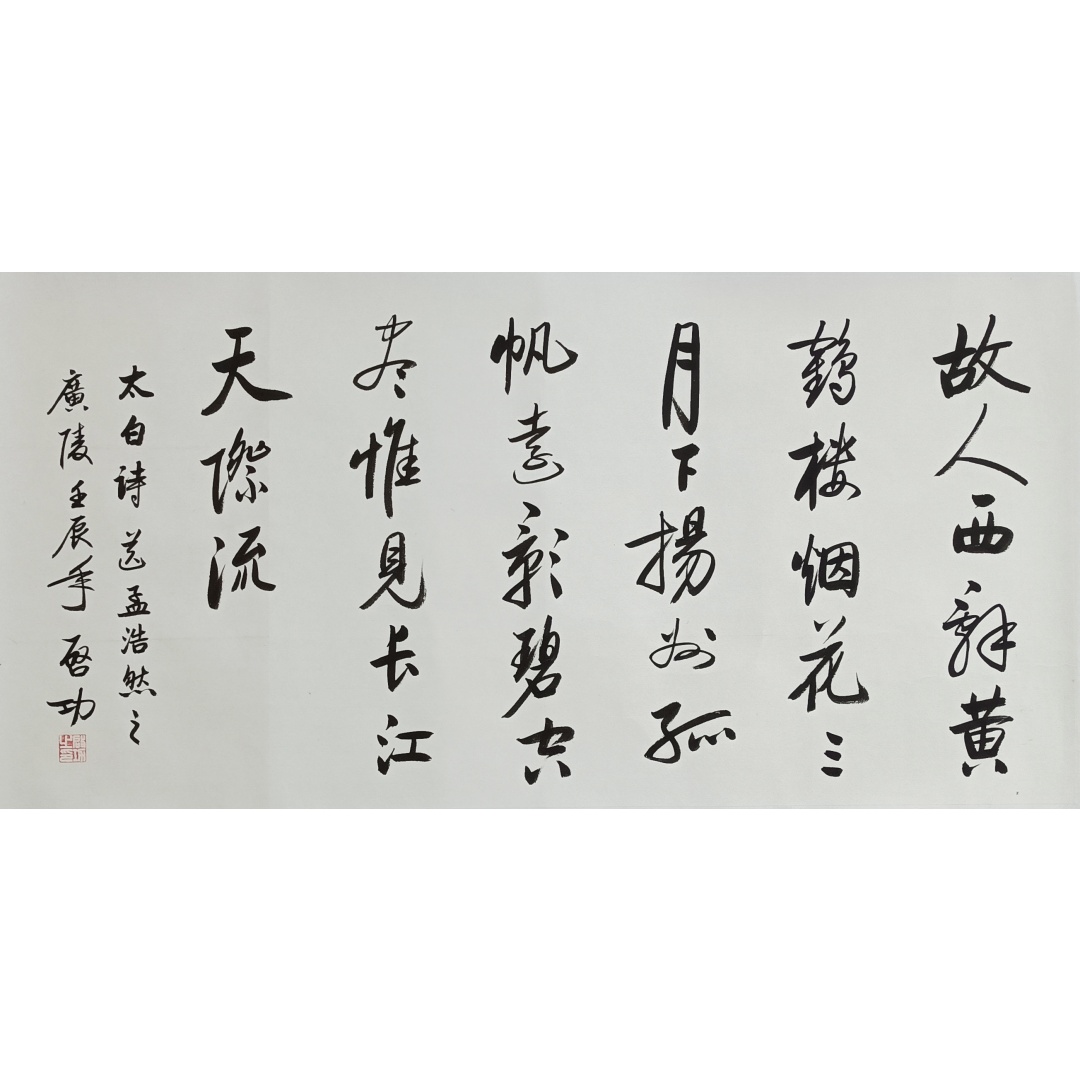 故人西辞黄
鶴楼烟花三
月下揚州孤
帆遠影碧空
尽惟見长江
天際流
太白詩送孟浩然之
廣陵壬辰年 啓功